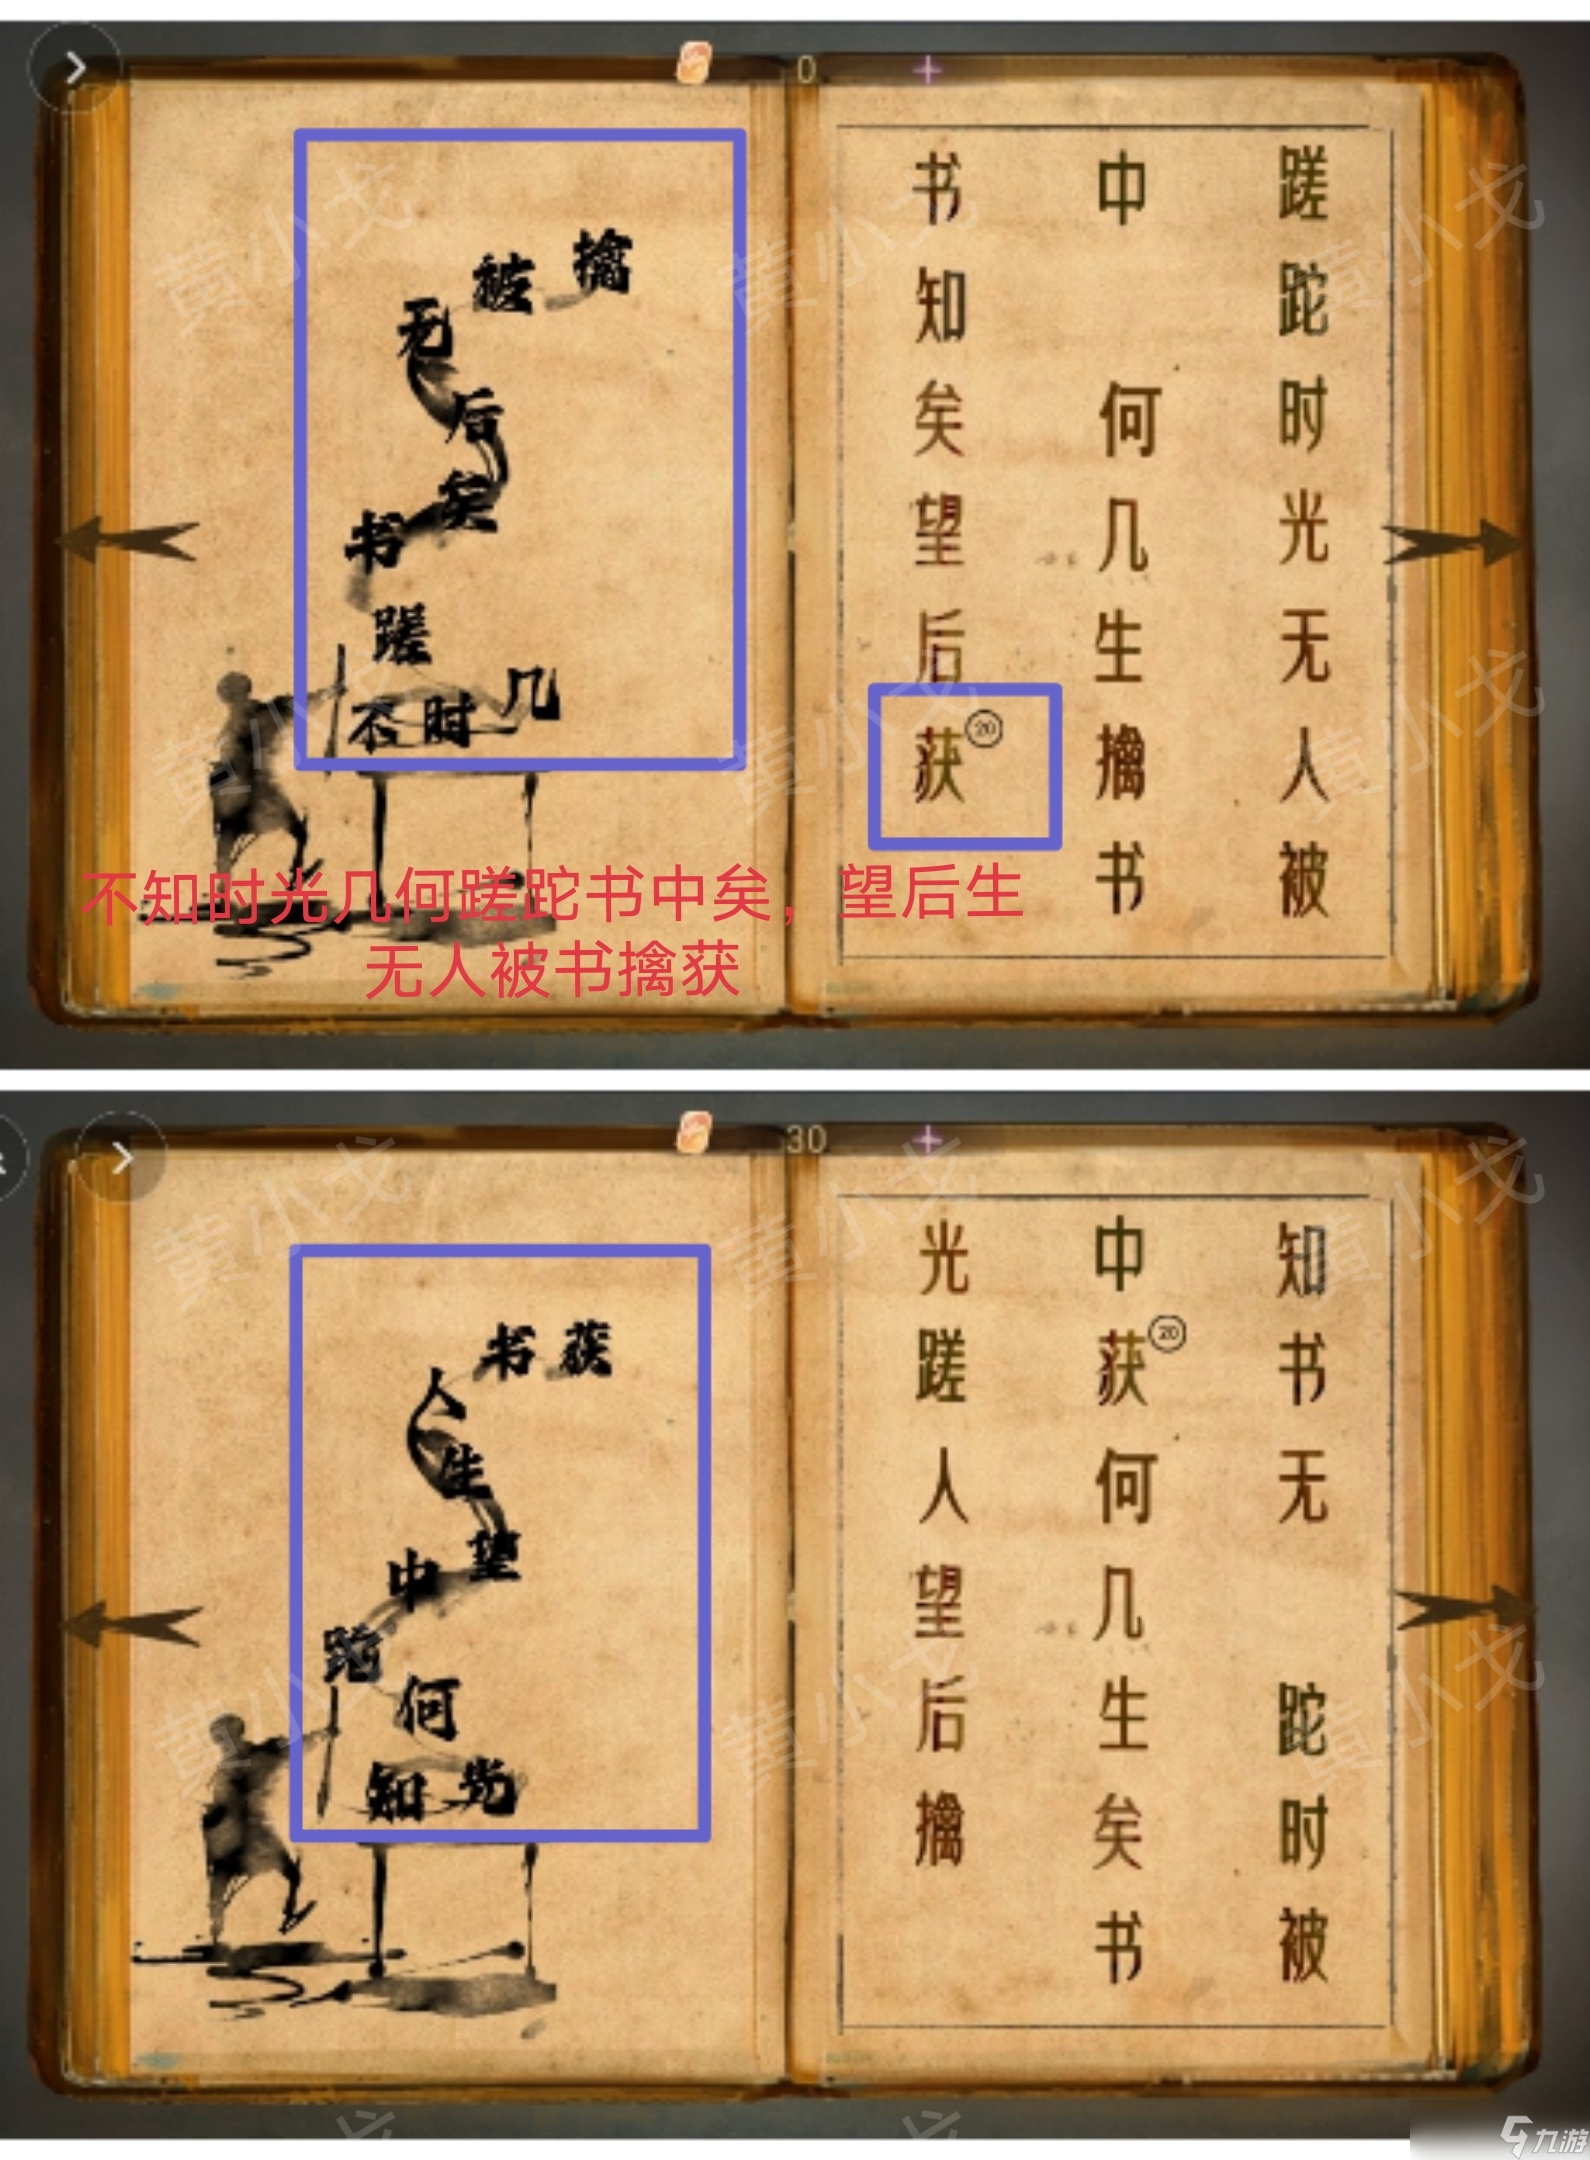 0
擒
被
无
后
矣
书
蹉
不时几
蹉跎时光无人被
中何几生擒书
书知矣望后获
20
不知时光几何蹉跎书中矣，望后生
无人被书擒获
30
书获
人
生
望
中
跎
何
知光
知书无跎时被
中获何几生矣书
20
光蹉人望后擒
黄小戈
九游